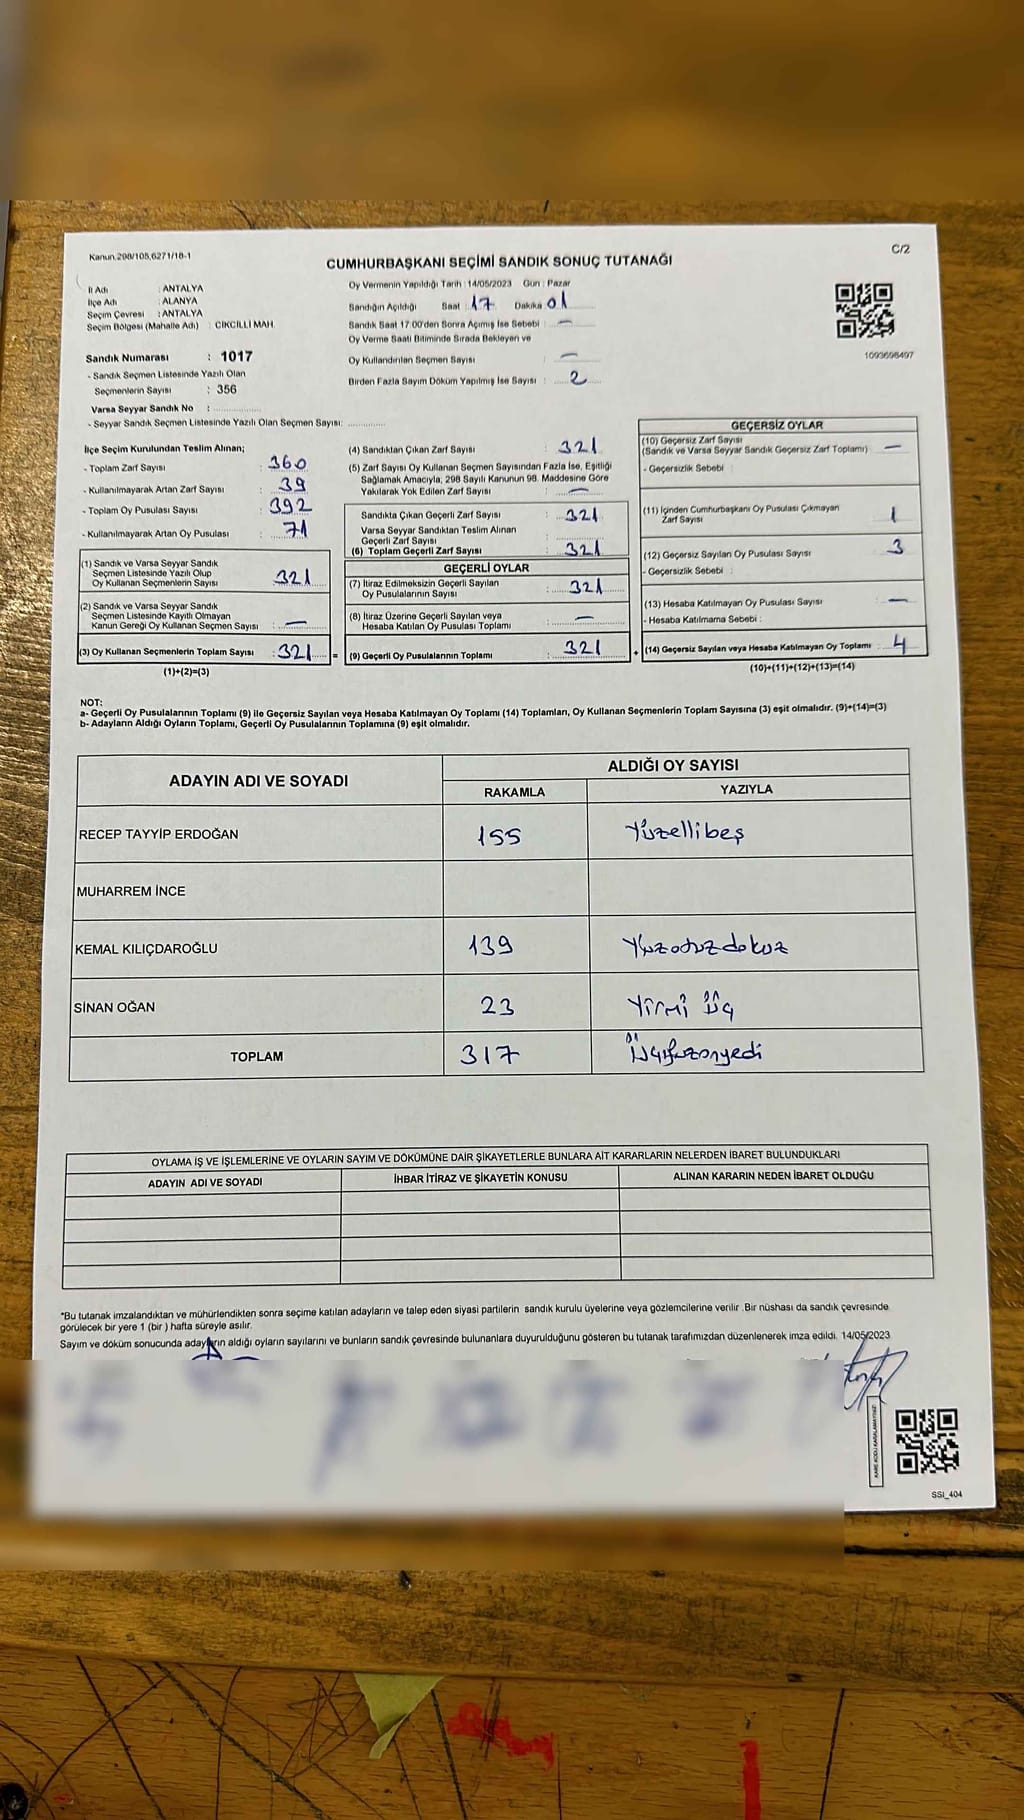 Kanun.298/105,6271/18-1
C/2
CUMHURBAŞKANI SEÇİMİ SANDIK SONUÇ TUTANAĞI
İl Adı : ANTALYA
İlçe Adı : ALANYA
Seçim Çevresi : ANTALYA
Seçim Bölgesi (Mahalle Adı) : CİKCİLLİ MAH.
Sandık Numarası : 1017
- Sandık Seçmen Listesinde Yazılı Olan
Seçmenlerin Sayısı : 356
Varsa Seyyar Sandık No :
- Seyyar Sandık Seçmen Listesinde Yazılı Olan Seçmen Sayısı:
Oy Vermenin Yapıldığı Tarih : 14/05/2023 Gün : Pazar
Sandığın Açıldığı Saat : 17 Dakika 01
Sandık Saat 17.00'den Sonra Açımış İse Sebebi : —
Oy Verme Saati Bitiminde Sırada Bekleyen ve
Oy Kullandırılan Seçmen Sayısı : —
Birden Fazla Sayım Döküm Yapılmış İse Sayısı : 2
1093698497
İlçe Seçim Kurulundan Teslim Alınan;
- Toplam Zarf Sayısı : 360
- Kullanılmayarak Artan Zarf Sayısı : 39
- Toplam Oy Pusulası Sayısı : 392
- Kullanılmayarak Artan Oy Pusulası : 71
(1) Sandık ve Varsa Seyyar Sandık
Seçmen Listesinde Yazılı Olup
Oy Kullanan Seçmenlerin Sayısı : 321
(2) Sandık ve Varsa Seyyar Sandık
Seçmen Listesinde Kayıtlı Olmayan
Kanun Gereği Oy Kullanan Seçmen Sayısı : —
(3) Oy Kullanan Seçmenlerin Toplam Sayısı : 321 =
(1)+(2)=(3)
(4) Sandıktan Çıkan Zarf Sayısı : 321
(5) Zarf Sayısı Oy Kullanan Seçmen Sayısından Fazla İse, Eşitliği
Sağlamak Amacıyla, 298 Sayılı Kanunun 98. Maddesine Göre
Yakılarak Yok Edilen Zarf Sayısı : —
Sandıkta Çıkan Geçerli Zarf Sayısı : 321
Varsa Seyyar Sandıktan Teslim Alınan
Geçerli Zarf Sayısı :
(6) Toplam Geçerli Zarf Sayısı : 321
GEÇERLİ OYLAR
(7) İtiraz Edilmeksizin Geçerli Sayılan
Oy Pusulalarının Sayısı : 321
(8) İtiraz Üzerine Geçerli Sayılan veya
Hesaba Katılan Oy Pusulası Toplamı : —
(9) Geçerli Oy Pusulalarının Toplamı : 321 +
GEÇERSİZ OYLAR
(10) Geçersiz Zarf Sayısı
(Sandık ve Varsa Seyyar Sandık Geçersiz Zarf Toplamı) —
- Geçersizlik Sebebi :
(11) İçinden Cumhurbaşkanı Oy Pusulası Çıkmayan
Zarf Sayısı 1
(12) Geçersiz Sayılan Oy Pusulası Sayısı 3
- Geçersizlik Sebebi :
(13) Hesaba Katılmayan Oy Pusulası Sayısı —
- Hesaba Katılmama Sebebi :
(14) Geçersiz Sayılan veya Hesaba Katılmayan Oy Toplamı : 4
(10)+(11)+(12)+(13)=(14)
NOT:
a- Geçerli Oy Pusulalarının Toplamı (9) ile Geçersiz Sayılan veya Hesaba Katılmayan Oy Toplamı (14) Toplamları, Oy Kullanan Seçmenlerin Toplam Sayısına (3) eşit olmalıdır. (9)+(14)=(3)
b- Adayların Aldığı Oyların Toplamı, Geçerli Oy Pusulalarının Toplamına (9) eşit olmalıdır.
ADAYIN ADI VE SOYADI
ALDIĞI OY SAYISI
RAKAMLA YAZIYLA
RECEP TAYYİP ERDOĞAN 155 Yüzellibeş
MUHARREM İNCE
KEMAL KILIÇDAROĞLU 139 Yüzotuzdokuz
SİNAN OĞAN 23 Yirmi üç
TOPLAM 317 Üçyüzonyedi
OYLAMA İŞ VE İŞLEMLERİNE VE OYLARIN SAYIM VE DÖKÜMÜNE DAİR ŞİKAYETLERLE BUNLARA AİT KARARLARIN NELERDEN İBARET BULUNDUKLARI
ADAYIN ADI VE SOYADI İHBAR İTİRAZ VE ŞİKAYETİN KONUSU ALINAN KARARIN NEDEN İBARET OLDUĞU
*Bu tutanak imzalandıktan ve mühürlendikten sonra seçime katılan adayların ve talep eden siyasi partilerin sandık kurulu üyelerine veya gözlemcilerine verilir .Bir nüshası da sandık çevresinde
görülecek bir yere 1 (bir ) hafta süreyle asılır.
Sayım ve döküm sonucunda adayların aldığı oyların sayılarını ve bunların sandık çevresinde bulunanlara duyurulduğunu gösteren bu tutanak tarafımızdan düzenlenerek imza edildi. 14/05/2023
KARE KODU KARALAMAYINIZ!
SSI_404